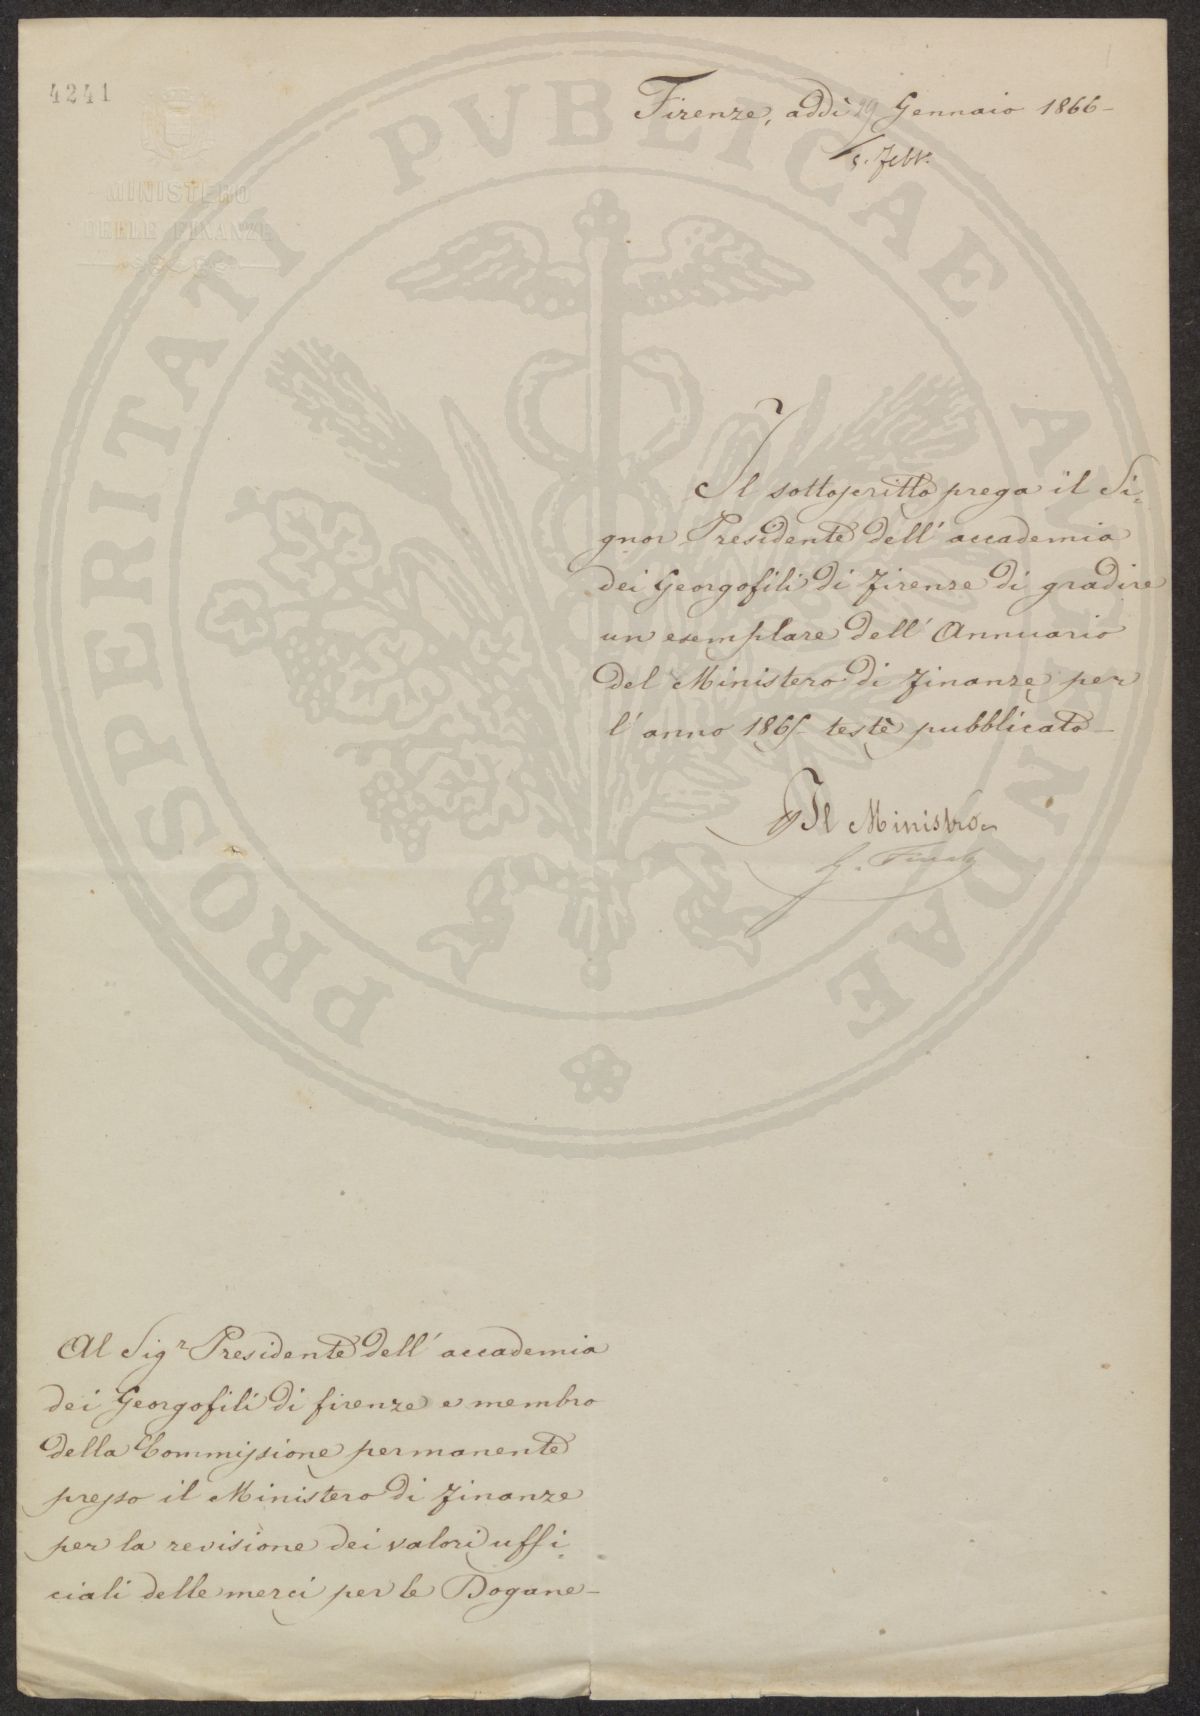 4241
MINISTERO
DELLE FINANZE
Firenze, addì 29 Gennaio 1866 -
5. Febb.
Il sottoscritto prega il Si=
gnor Presidente dell' accademia
dei Georgofili di Firenze di gradire
un esemplare dell' Annuario
del Ministero di Finanze per
l' anno 1865 testè pubblicato -
Il Ministro
Al Sigr Presidente dell' accademia
dei Georgofili di firenze e membro
della Commissione permanente
presso il Ministero di Finanze
per la revisione dei valori uffi
ciali delle merci per le Dogane -
PROSPERITATI PVBLICAE AVGENDAE